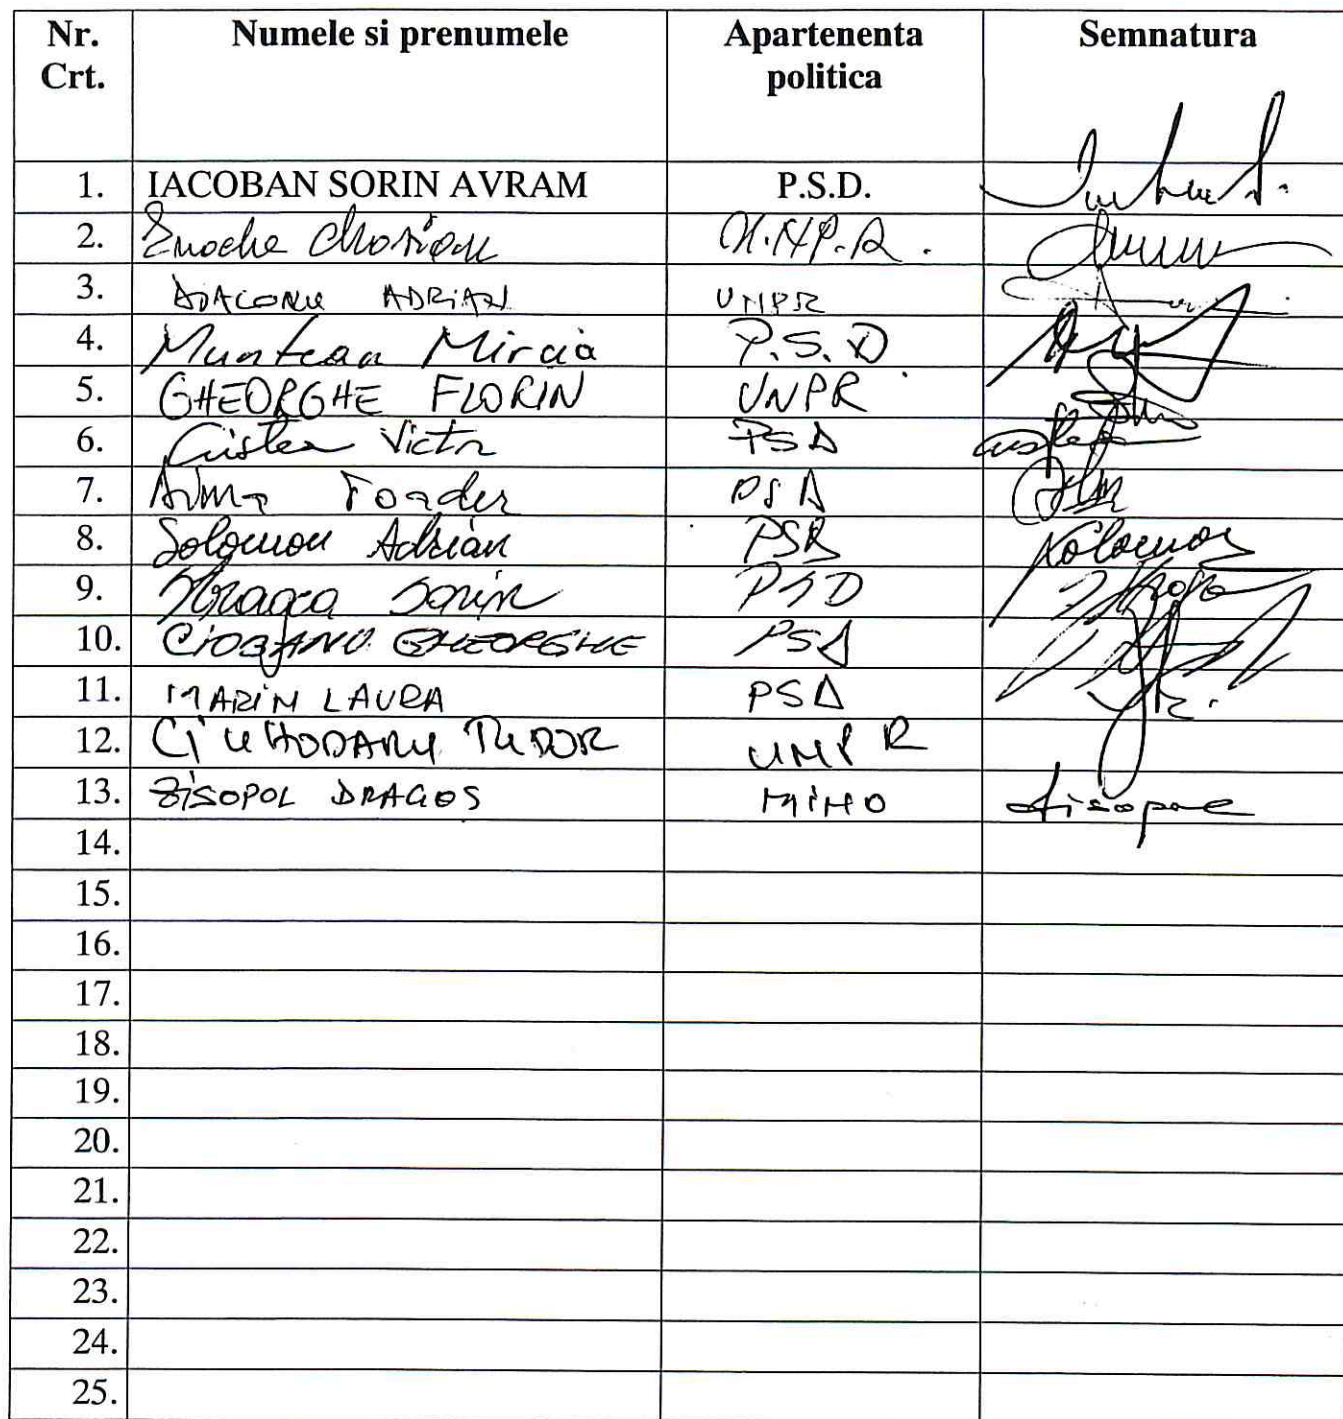 Nr. Crt. Numele si prenumele Apartenenta politica Semnatura
1. IACOBAN SORIN AVRAM P.S.D.
2. Enache Marian U.N.P.R.
3. DIACONU ADRIAN UNPR
4. Muntean Mircia P.S.D
5. GHEORGHE FLORIN UNPR
6. Cristea Victor PSD
7. PSD
8. Solomon Adrian PSD Solomon
9. Sorin PSD
10. CIOBANU GHEORGHE PSD
11. MARIN LAURA PSD
12. CIUHODARU TUDOR UNPR
13. ZISOPOL DRAGOS MINO Zisopol
14.
15.
16.
17.
18.
19.
20.
21.
22.
23.
24.
25.